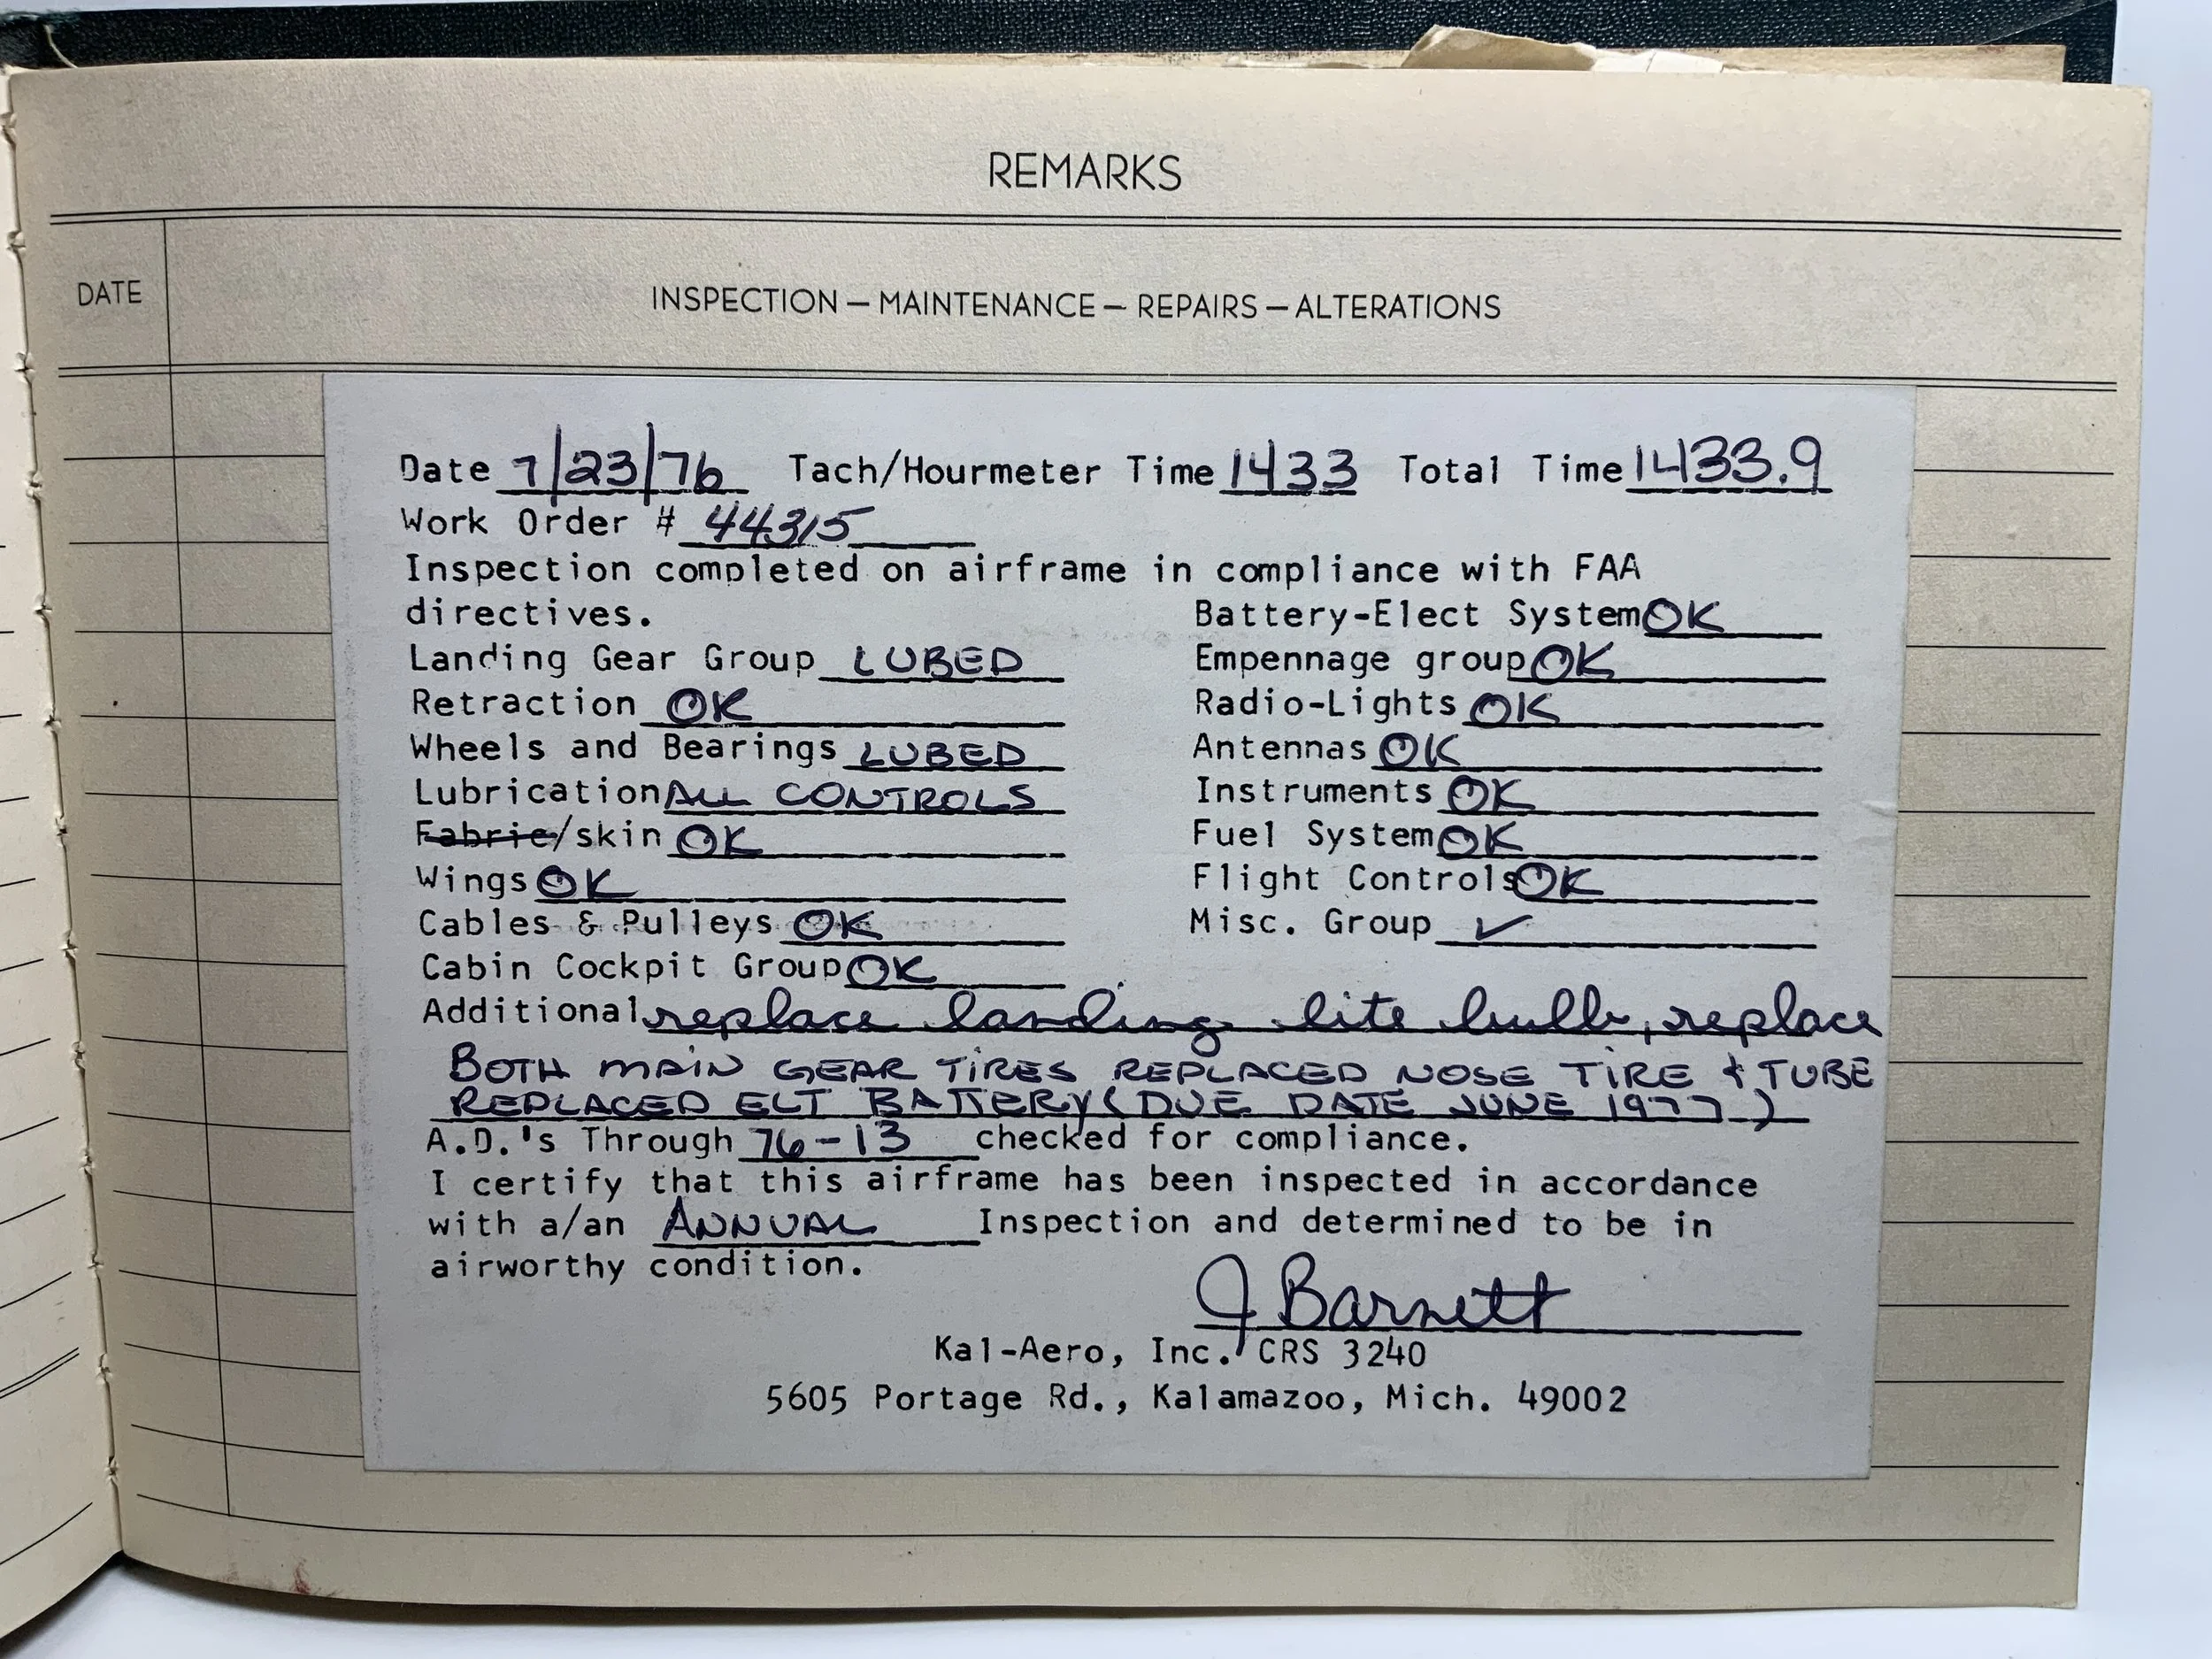 REMARKS
DATE
INSPECTION — MAINTENANCE — REPAIRS — ALTERATIONS
Date 7/23/76 Tach/Hourmeter Time 1433 Total Time 1433.9
Work Order # 44315
Inspection completed on airframe in compliance with FAA
directives. Battery-Elect System OK
Landing Gear Group LUBED Empennage group OK
Retraction OK Radio-Lights OK
Wheels and Bearings LUBED Antennas OK
Lubrication ALL CONTROLS Instruments OK
Fabric/skin OK Fuel System OK
Wings OK Flight Controls OK
Cables & Pulleys OK Misc. Group ✓
Cabin Cockpit Group OK
Additional replace landing lite bulb, replace
BOTH MAIN GEAR TIRES REPLACED NOSE TIRE & TUBE
REPLACED ELT BATTERY (DUE DATE JUNE 1977)
A.D.'s Through 76-13 checked for compliance.
I certify that this airframe has been inspected in accordance
with a/an ANNUAL Inspection and determined to be in
airworthy condition.
J Barnett
Kal-Aero, Inc. CRS 3240
5605 Portage Rd., Kalamazoo, Mich. 49002